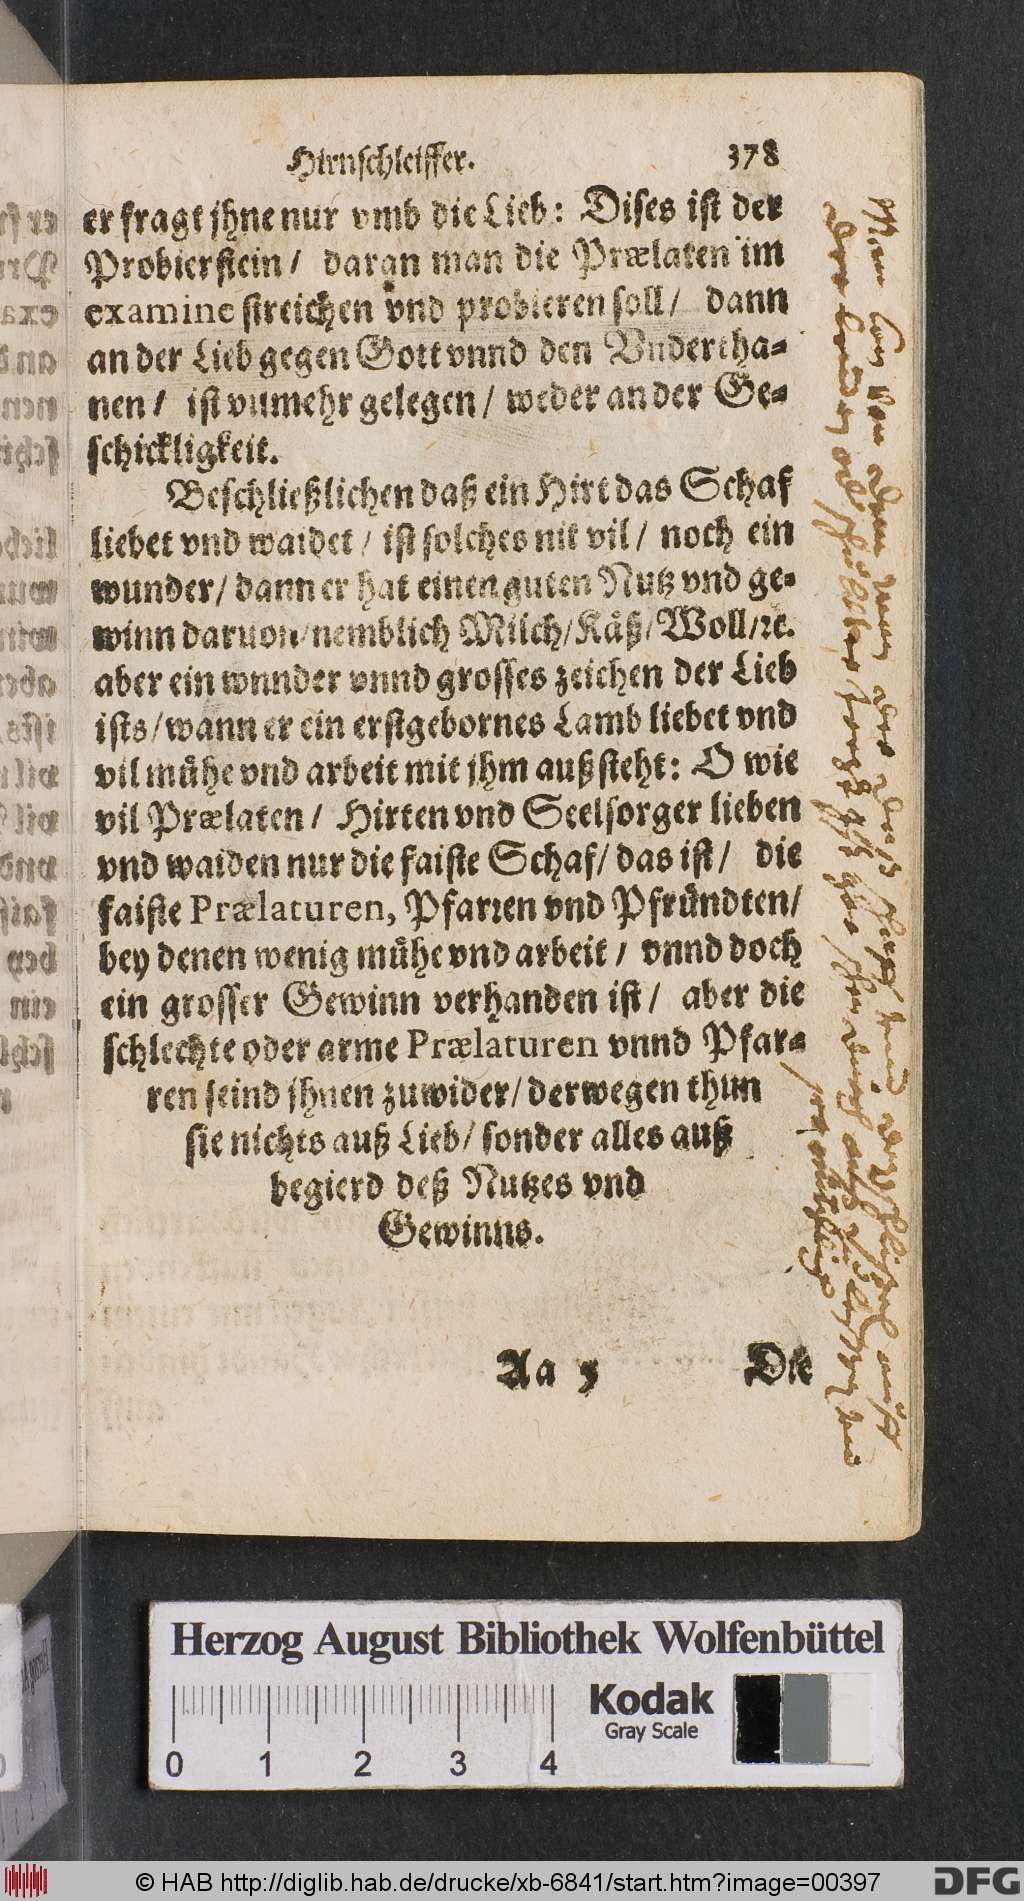 Hirnschleiffer. 378
er fragt jhne nur vmb die Lieb: Dises ist der
Probierstein / daran man die Prælaten im
examine streichen vnd probieren soll / dann
an der Lieb gegen Gott vnnd den Vndertha-
nen / ist vilmehr gelegen / weder an der Ge-
schickligkeit.
Beschließlichen daß ein Hirt das Schaf
liebet vnd waidet / ist solches nit vil / noch ein
wunder / dann er hat einen guten Nutz vnd ge-
winn daruon / nemblich Milch / Käß / Woll / ꝛc.
aber ein wnnder vnnd grosses zeichen der Lieb
ists / wann er ein erstgebornes Lamb liebet vnd
vil mühe vnd arbeit mit jhm außsteht: O wie
vil Prælaten / Hirten vnd Seelsorger lieben
vnd waiden nur die faiste Schaf / das ist / die
faiste Prælaturen, Pfarren vnd Pfründten /
bey denen wenig mühe vnd arbeit / vnnd doch
ein grosser Gewinn verhanden ist / aber die
schlechte oder arme Prælaturen vnnd Pfar-
ren seind jhnen zuwider / derwegen thun
sie nichts auß Lieb / sonder alles auß
begierd deß Nutzes vnd
Gewinns.
Aa 5 Die
Herzog August Bibliothek Wolfenbüttel
Kodak
Gray Scale
0 1 2 3 4
© HAB http://diglib.hab.de/drucke/xb-6841/start.htm?image=00397
DFG